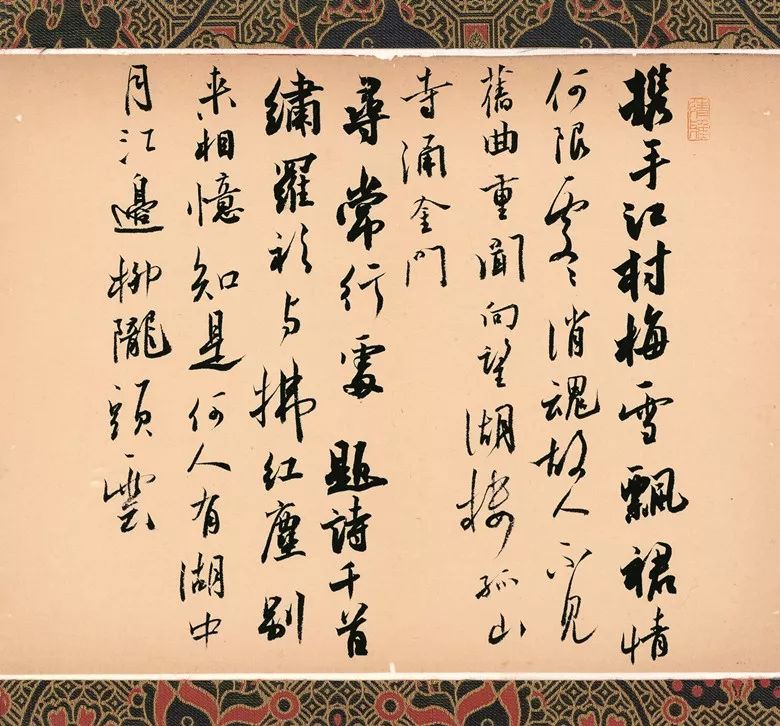 攜手江村梅雪飄裙情
何限處〻消魂故人不見
舊曲重聞向望湖樓孤山
寺涌金門
尋常行處題詩千首
繡羅衫與拂紅塵別
来相憶知是何人有湖中
月江邊柳隴頭雲